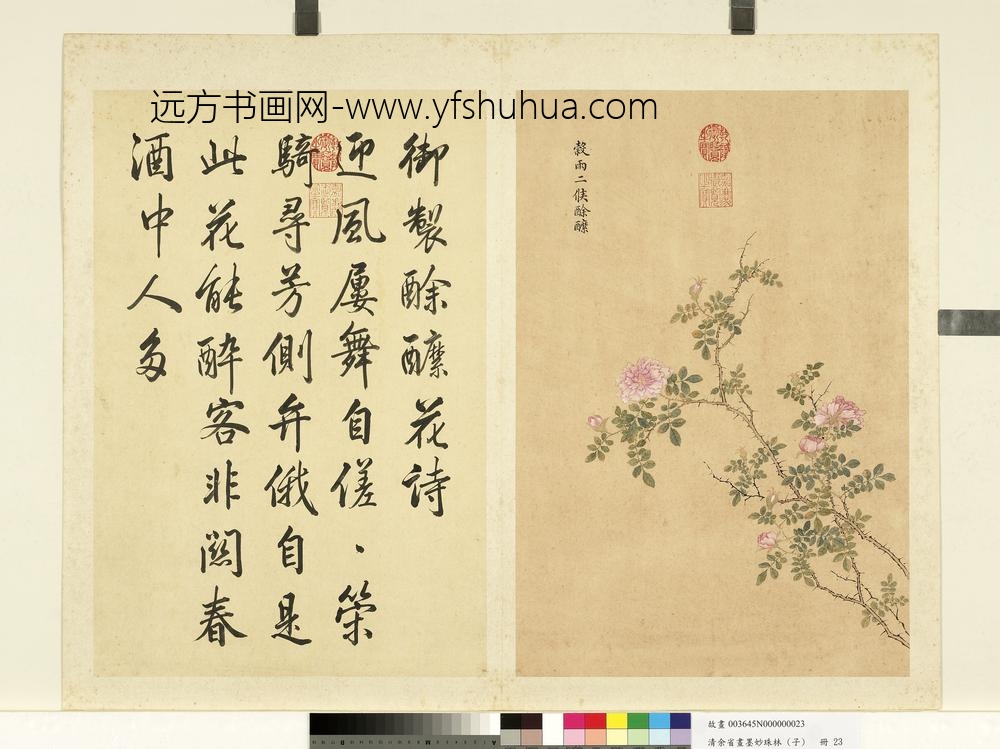 远方书画网-www.yfshuhua.com
穀雨二候酴醾
御製酴醾花詩
迎風屢舞自傞、策
騎尋芳側弁俄自是
此花能醉客非關春
酒中人多
故畫 003645N000000023
清余省畫墨妙珠林（子） 冊 23